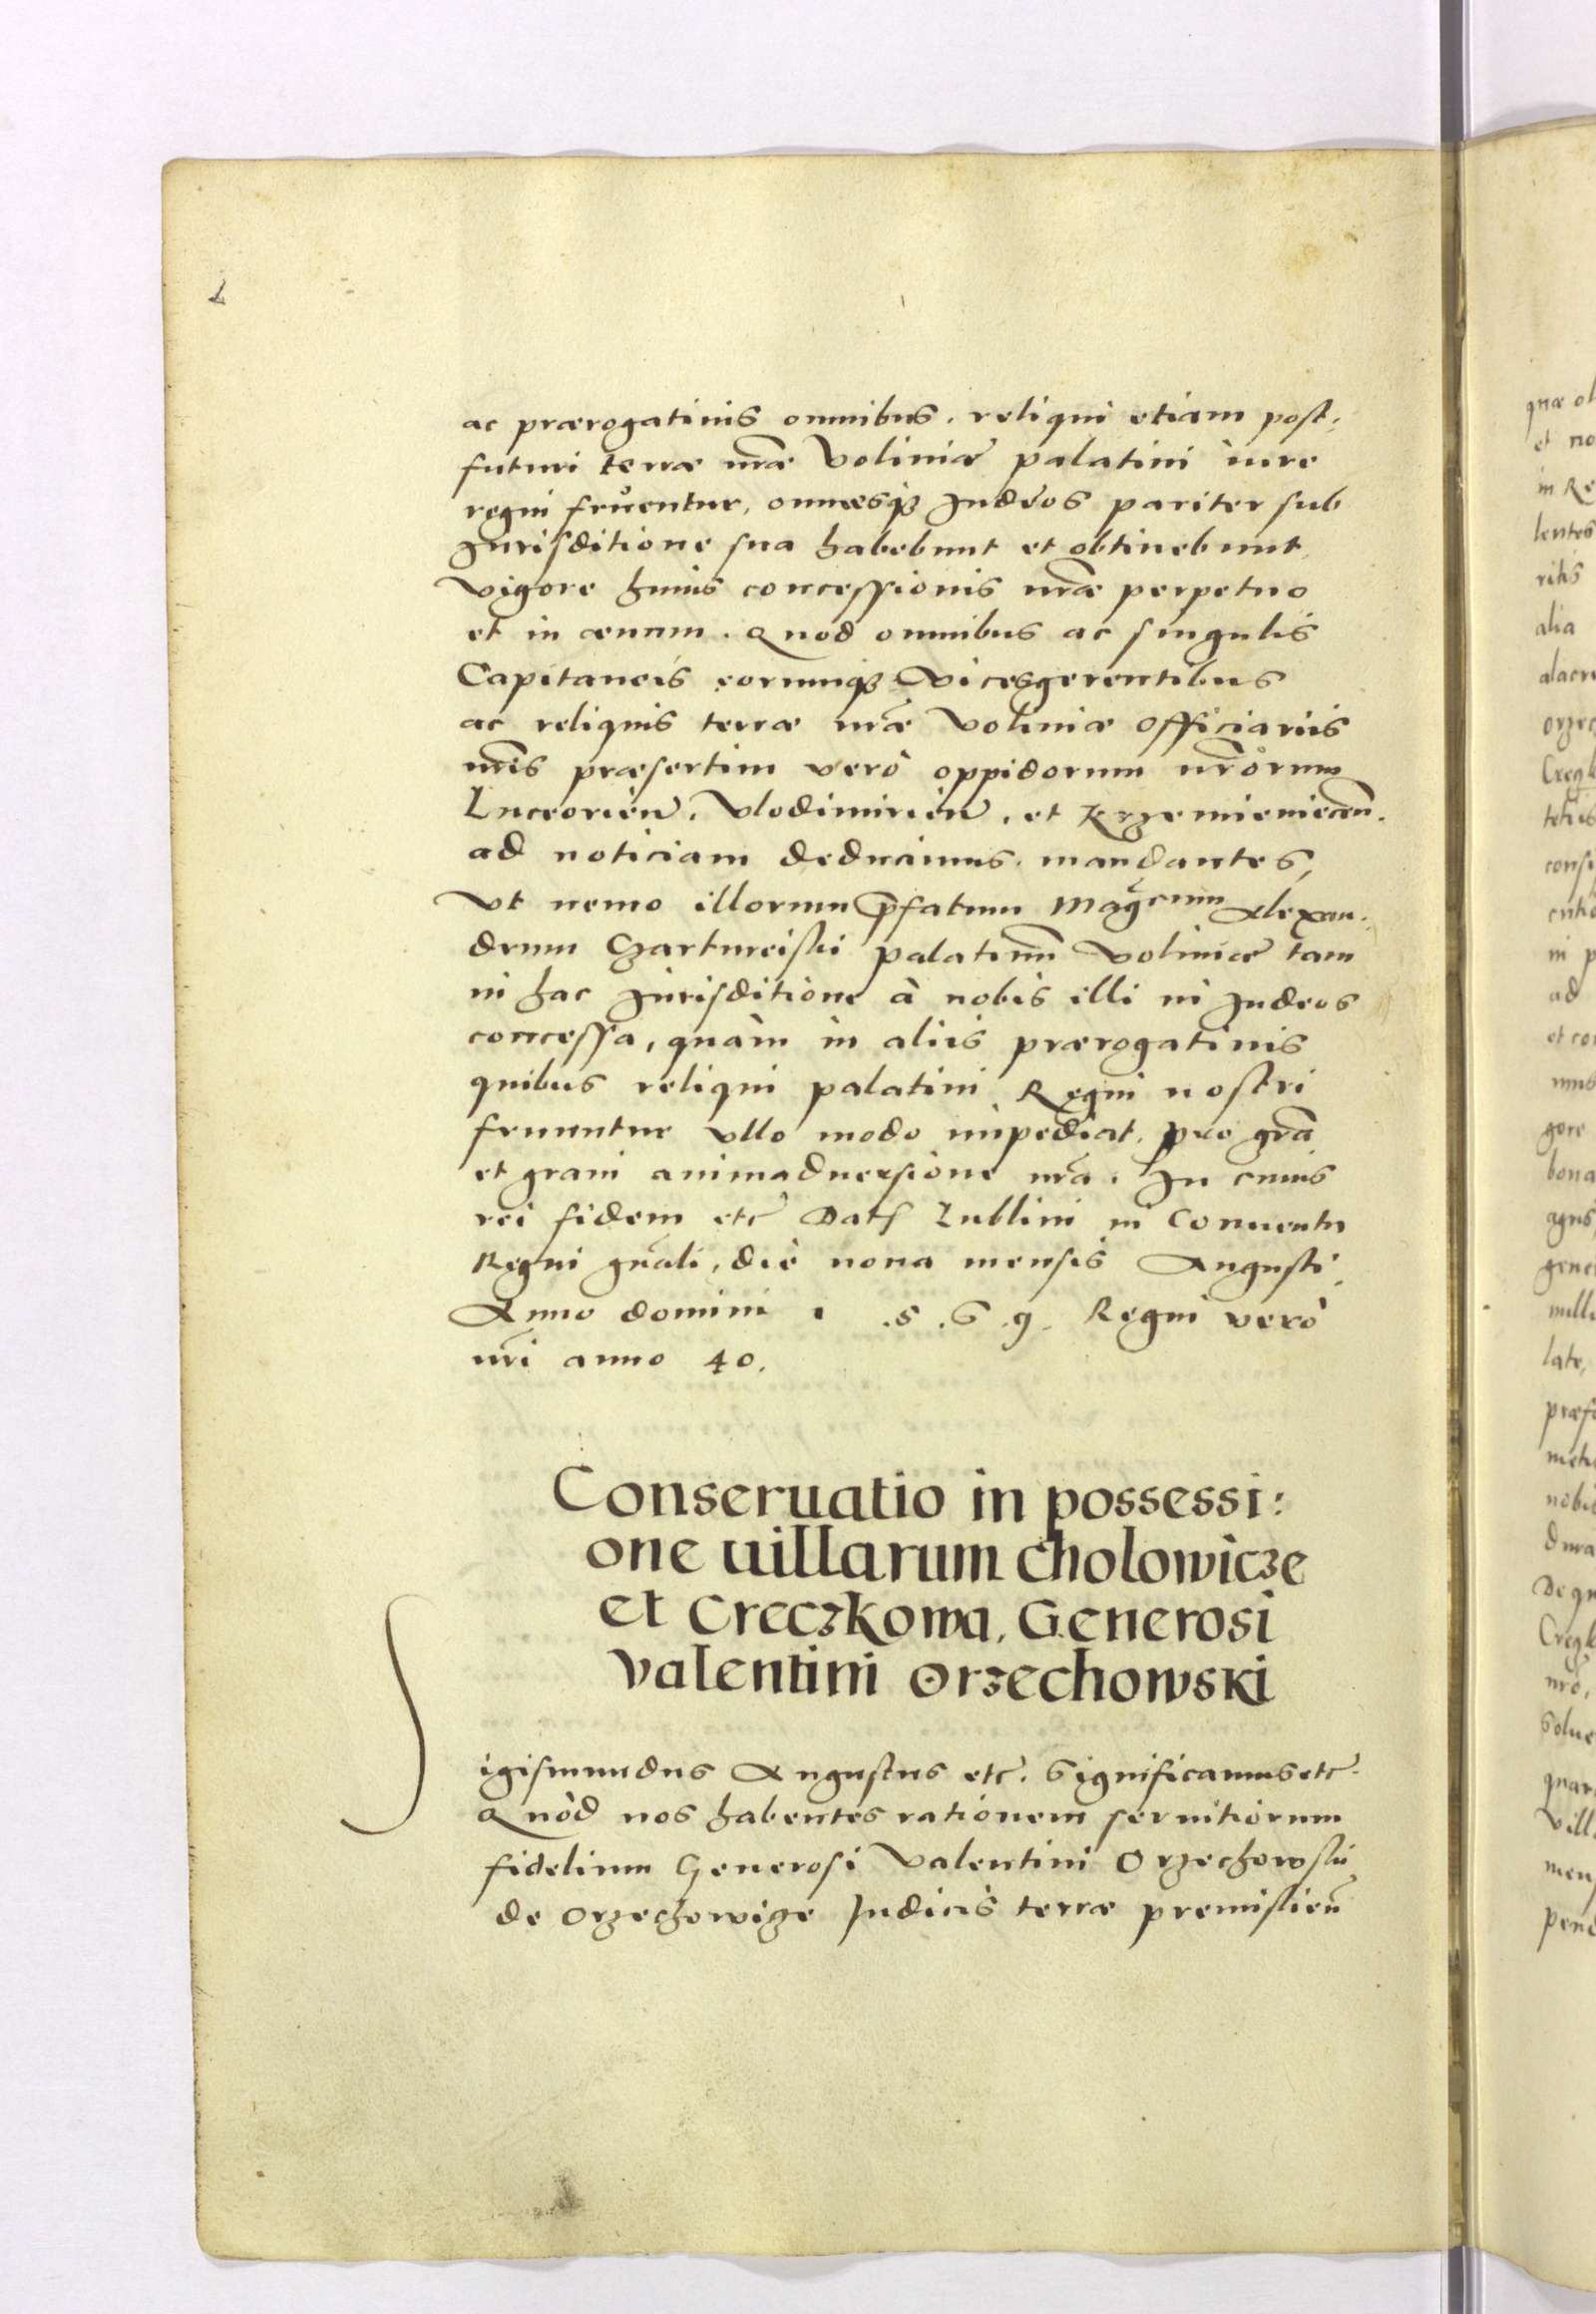 ac prærogatiuis omnibus. reliqui etiam post:
futuri terræ nr̃æ Voliniæ palatini iure
regni fruentur, omnesq3 Iudeos pariter sub
Iurisditione sua habebunt et obtinebunt
vigore huius concessionis nr̃æ perpetuo
et in æuum. Quod omnibus ac singulis
Capitaneis eorumq3 vicesgerentibus
ac reliquis terræ nr̃æ Voliniæ officiariis
nr̃is præsertim verò oppidorum nr̃orum
Luceorieñ. Vlodimirieñ. et Krzemienieceñ.
ad noticiam deducimus. mandantes,
Vt nemo illorum p̃fatum Mag̃cum Alexan:
drum Czartureiski palatinũ Voliniæ tam
in hac Iurisditione à nobis illi in Iudeos
concessa, quàm in aliis prærogatiuis
quibus reliqui palatini Regni nostri
fruuntur vllo modo impediat. pro gr̃a
et graui animaduersione nr̃a. In cuius
rei fidem etc̃ Dat Lublini in Conuentu
Regni gñali, die nona mensis Augusti
Anno domini 1.5.6.9. Regni verò
nr̃i anno 40.
Conseruatio in possessi:
one uillarum Cholowicze
et Creczkowa, Generosi
Valentini Orzechowski
Sigismundus Augustus etc̃. Significamus etc̃.
Quòd nos habentes rationem seruitiorum
fidelium Generosi Valentini Orzechowski
de Orzechowize Iudicis terræ premislieñ
quæ ol
et no
in Re
lentes
ritis
alia
alacri
orzec
tetis
consi
in p
ad
et con
mus
gore
bona
agris
gener
nulli
late,
præf
nobis
dura
De qu
nr̃o,
Solue
quar
Vill
mens
pend